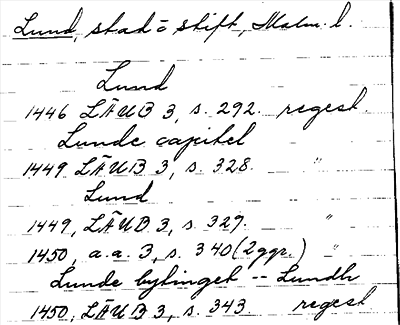 Lund, stad o stift, Malm. l.
Lund
1446 LÄUB 3, s. 292. regest.
Lunde capitel
1449 LÄUB 3, s. 328. "
Lund
1449, LÄUB 3, s. 329. "
1450, a.a. 3, s. 340 (2 ggr.) "
Lunde bytinget -- Lundh
1450, LÄUB 3, s. 343 regest